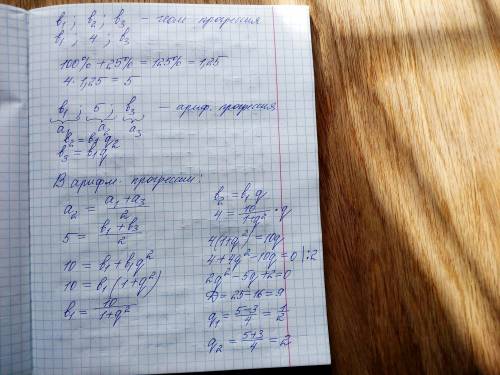 b₁ ; b₂ ; b₃ – геом прогрессия
b₁ ; 4 ; b₃
100% + 25% = 125% = 1,25
4·1,25 = 5
b₁ ; 5 ; b₃ – ариф. прогрессия
a₁ a₂ a₃
b₂ = b₁ q
b₃ = b₁ q²
В арифм. прогрессии:
a₂ = (a₁ + a₃)/2
5 = (b₁ + b₃)/2
10 = b₁ + b₁q²
10 = b₁(1+q²)
b₁ = 10/(1+q²)
b₂ = b₁ q
4 = 10/(1+q²) · q
4(1+q²) = 10q
4 + 4q² – 10q = 0 | :2
2q² – 5q + 2 = 0
D = 25 – 16 = 9
q₁ = (5–3)/4 = 1/2
q₂ = (5+3)/4 = 2